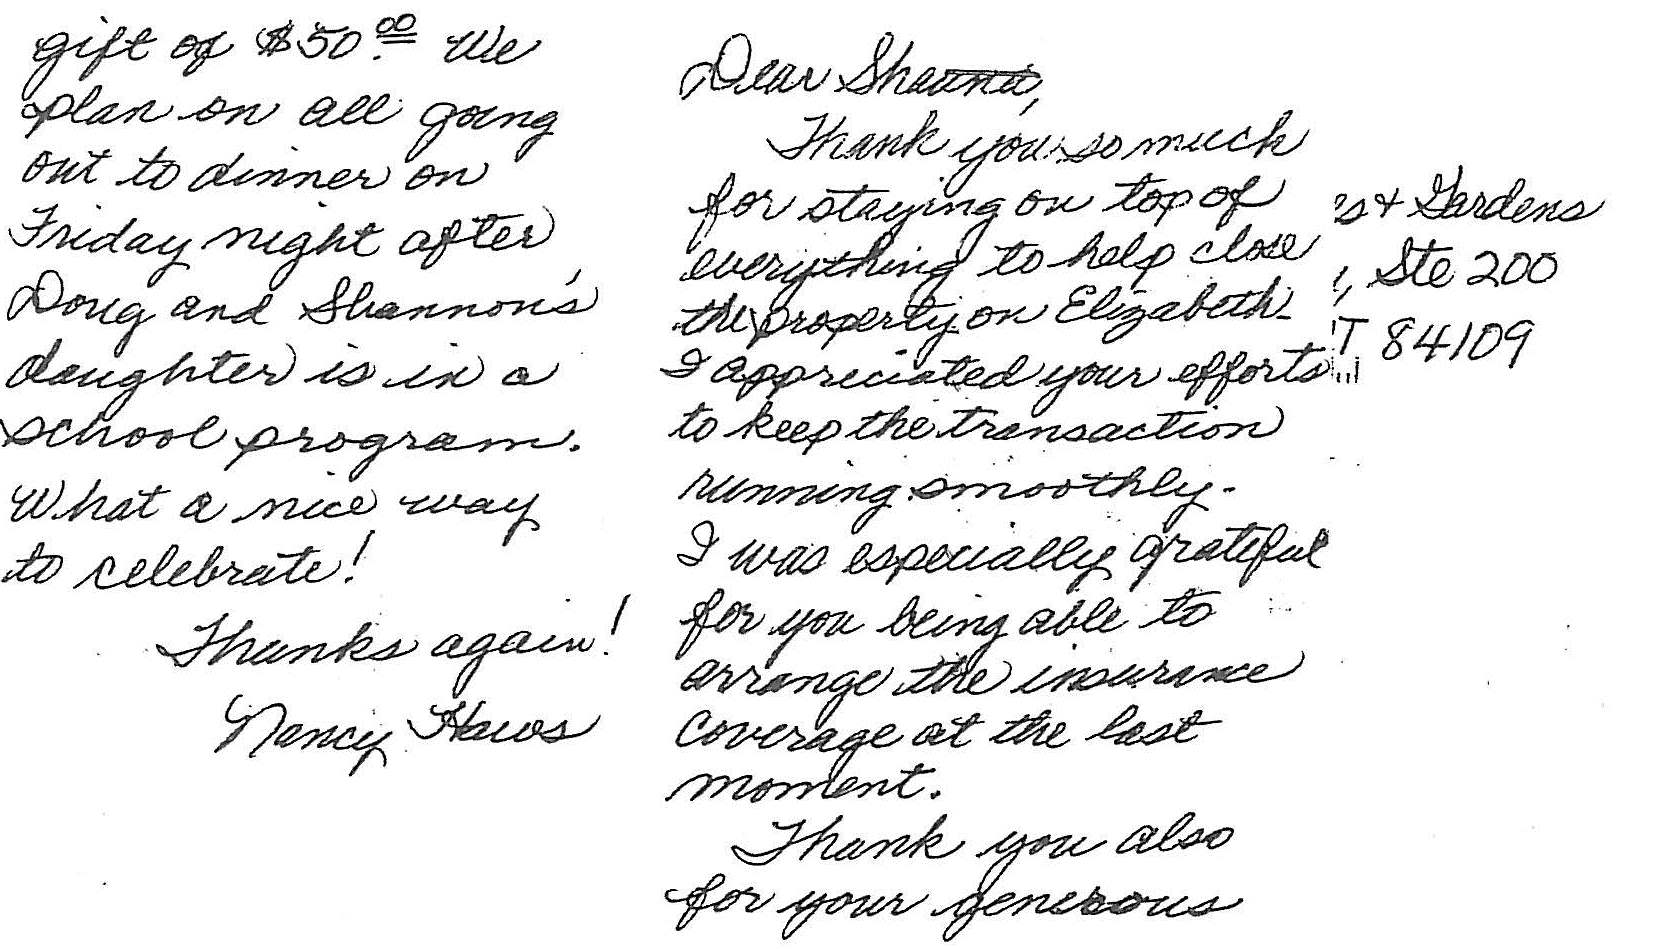 Dear Shauna,
Thank you so much
for staying on top of
everything to help close
the property on Elizabeth.
I appreciated your efforts
to keep the transaction
running smoothly.
I was especially grateful
for you being able to
arrange the insurance
coverage at the last
moment.
Thank you also
for your generous
gift of $50.00 We
plan on all going
out to dinner on
Friday night after
Doug and Shannon's
daughter is in a
school program.
What a nice way
to celebrate!
Thanks again!
Nancy Haws
's & Gardens
, Ste 200
T 84109